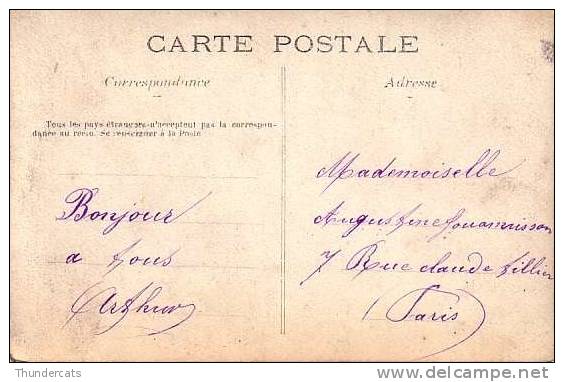 CARTE POSTALE
Correspondance
Adresse
Tous les pays étrangers n'acceptent pas la correspon-
dance au recto. Se renseigner à la Poste
Bonjour
a tous
Arthur
Mademoiselle
Augustine
7 Rue claude tillier
Paris
Thundercats
delcampe.net